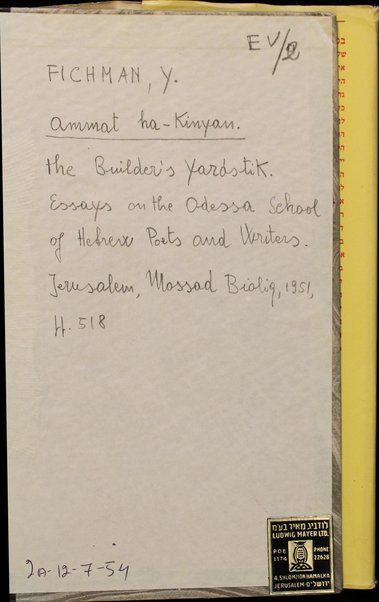 EV/2
FICHMAN, Y.
Ammat ha-Kinyan.
the Builder's Yardstik.
Essays on the Odessa School
of Hebrew Poets and Writers.
Jerusalem, Mossad Bialiq, 1951,
H. 518
לודביג מאיר בע"מ
LUDWIG MAYER LTD.
P.O.B. 1174
PHONE 22628
4, SHLOMZION HAMALKA
JERUSALEM-ירושלים
2A-12-7-54